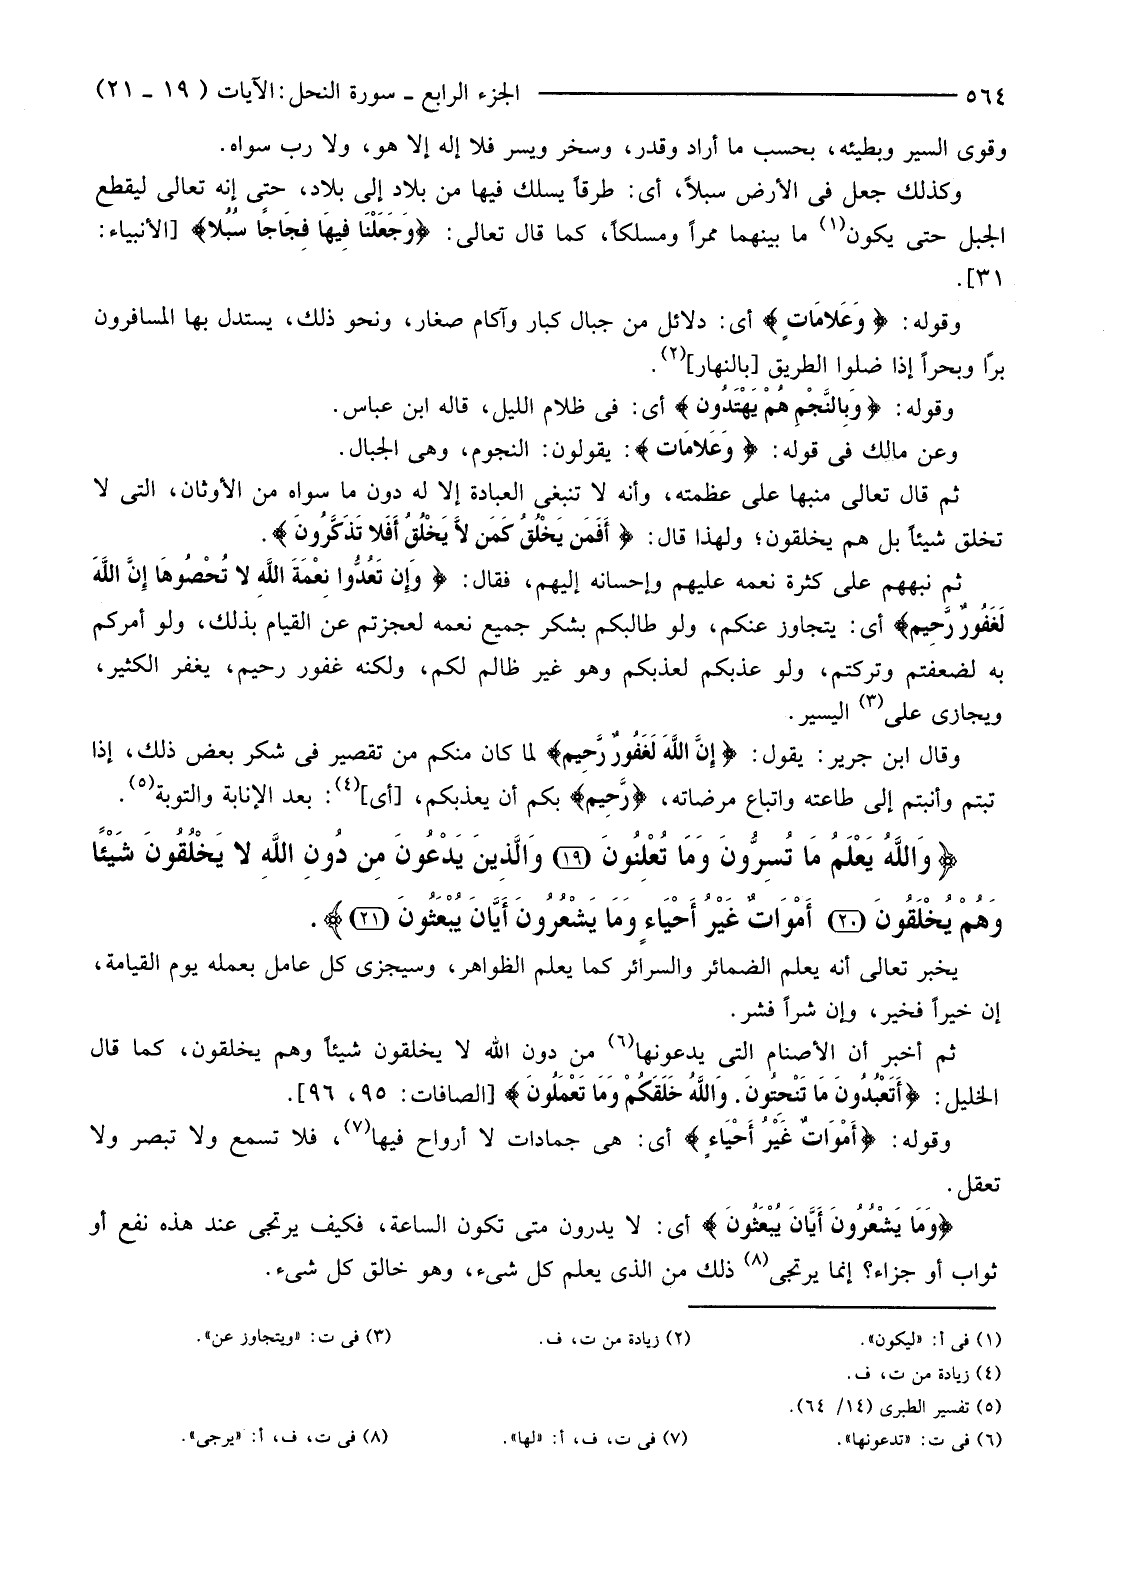 ٥٦٤ ــــــــــ الجزء الرابع ـ سورة النحل: الآيات ( ١٩ ـ ٢١)
وقوى السير وبطيئه، بحسب ما أراد وقدر، وسخر ويسر فلا إله إلا هو، ولا رب سواه.
وكذلك جعل فى الأرض سبلاً، أى: طرقاً يسلك فيها من بلاد إلى بلاد، حتى إنه تعالى ليقطع
الجبل حتى يكون(١) ما بينهما ممراً ومسلكاً، كما قال تعالى: ﴿وَجَعَلْنَا فِيهَا فِجَاجًا سُبُلا﴾ [الأنبياء:
٣١].
وقوله: ﴿ وَعَلامَاتٍ ﴾ أى: دلائل من جبال كبار وآكام صغار، ونحو ذلك، يستدل بها المسافرون
برًا وبحراً إذا ضلوا الطريق [بالنهار](٢).
وقوله: ﴿ وَبِالنَّجْمِ هُمْ يَهْتَدُون ﴾ أى: فى ظلام الليل، قاله ابن عباس.
وعن مالك فى قوله: ﴿ وَعَلامَات ﴾: يقولون: النجوم، وهى الجبال.
ثم قال تعالى منبها على عظمته، وأنه لا تنبغى العبادة إلا له دون ما سواه من الأوثان، التى لا
تخلق شيئاً بل هم يخلقون؛ ولهذا قال: ﴿ أَفَمَن يَخْلُقُ كَمَن لاَّ يَخْلُقُ أَفَلا تَذَكَّرُونَ ﴾.
ثم نبههم على كثرة نعمه عليهم وإحسانه إليهم، فقال: ﴿ وَإِن تَعُدُّوا نِعْمَةَ اللَّهِ لا تُحْصُوهَا إِنَّ اللَّهَ
لَغَفُورٌ رَّحِيم﴾ أى: يتجاوز عنكم، ولو طالبكم بشكر جميع نعمه لعجزتم عن القيام بذلك، ولو أمركم
به لضعفتم وتركتم، ولو عذبكم لعذبكم وهو غير ظالم لكم، ولكنه غفور رحيم، يغفر الكثير،
ويجازى على(٣) اليسير.
وقال ابن جرير: يقول: ﴿ إِنَّ اللَّهَ لَغَفُورٌ رَّحِيم﴾ لما كان منكم من تقصير فى شكر بعض ذلك، إذا
تبتم وأنبتم إلى طاعته واتباع مرضاته، ﴿رَّحِيم﴾ بكم أن يعذبكم، [أى](٤): بعد الإنابة والتوبة(٥).
﴿ وَاللَّهُ يَعْلَمُ مَا تُسِرُّونَ وَمَا تُعْلِنُونَ (١٩) وَالَّذِينَ يَدْعُونَ مِن دُونِ اللَّهِ لا يَخْلُقُونَ شَيْئًا
وَهُمْ يُخْلَقُونَ (٢٠) أَمْوَاتٌ غَيْرُ أَحْيَاءٍ وَمَا يَشْعُرُونَ أَيَّانَ يُبْعَثُونَ (٢١) ﴾.
يخبر تعالى أنه يعلم الضمائر والسرائر كما يعلم الظواهر، وسيجزى كل عامل بعمله يوم القيامة،
إن خيراً فخير، وإن شراً فشر.
ثم أخبر أن الأصنام التى يدعونها(٦) من دون الله لا يخلقون شيئاً وهم يخلقون، كما قال
الخليل: ﴿أَتَعْبُدُونَ مَا تَنْحِتُونَ. وَاللَّهُ خَلَقَكُمْ وَمَا تَعْمَلُونَ ﴾ [الصافات: ٩٥، ٩٦].
وقوله: ﴿أَمْوَاتٌ غَيْرُ أَحْيَاءٍ ﴾ أى: هى جمادات لا أرواح فيها(٧)، فلا تسمع ولا تبصر ولا
تعقل.
﴿وَمَا يَشْعُرُونَ أَيَّانَ يُبْعَثُونَ ﴾ أى: لا يدرون متى تكون الساعة، فكيف يرتجى عند هذه نفع أو
ثواب أو جزاء؟ إنما يرتجى(٨) ذلك من الذى يعلم كل شىء، وهو خالق كل شىء.
(١) فى أ: «ليكون». (٢) زيادة من ت، ف. (٣) فى ت: «ويتجاوز عن».
(٤) زيادة من ت، ف.
(٥) تفسير الطبرى (١٤/ ٦٤).
(٦) فى ت: «تدعونها». (٧) فى ت، ف، أ: «لها». (٨) فى ت، ف، أ: «يرجى».